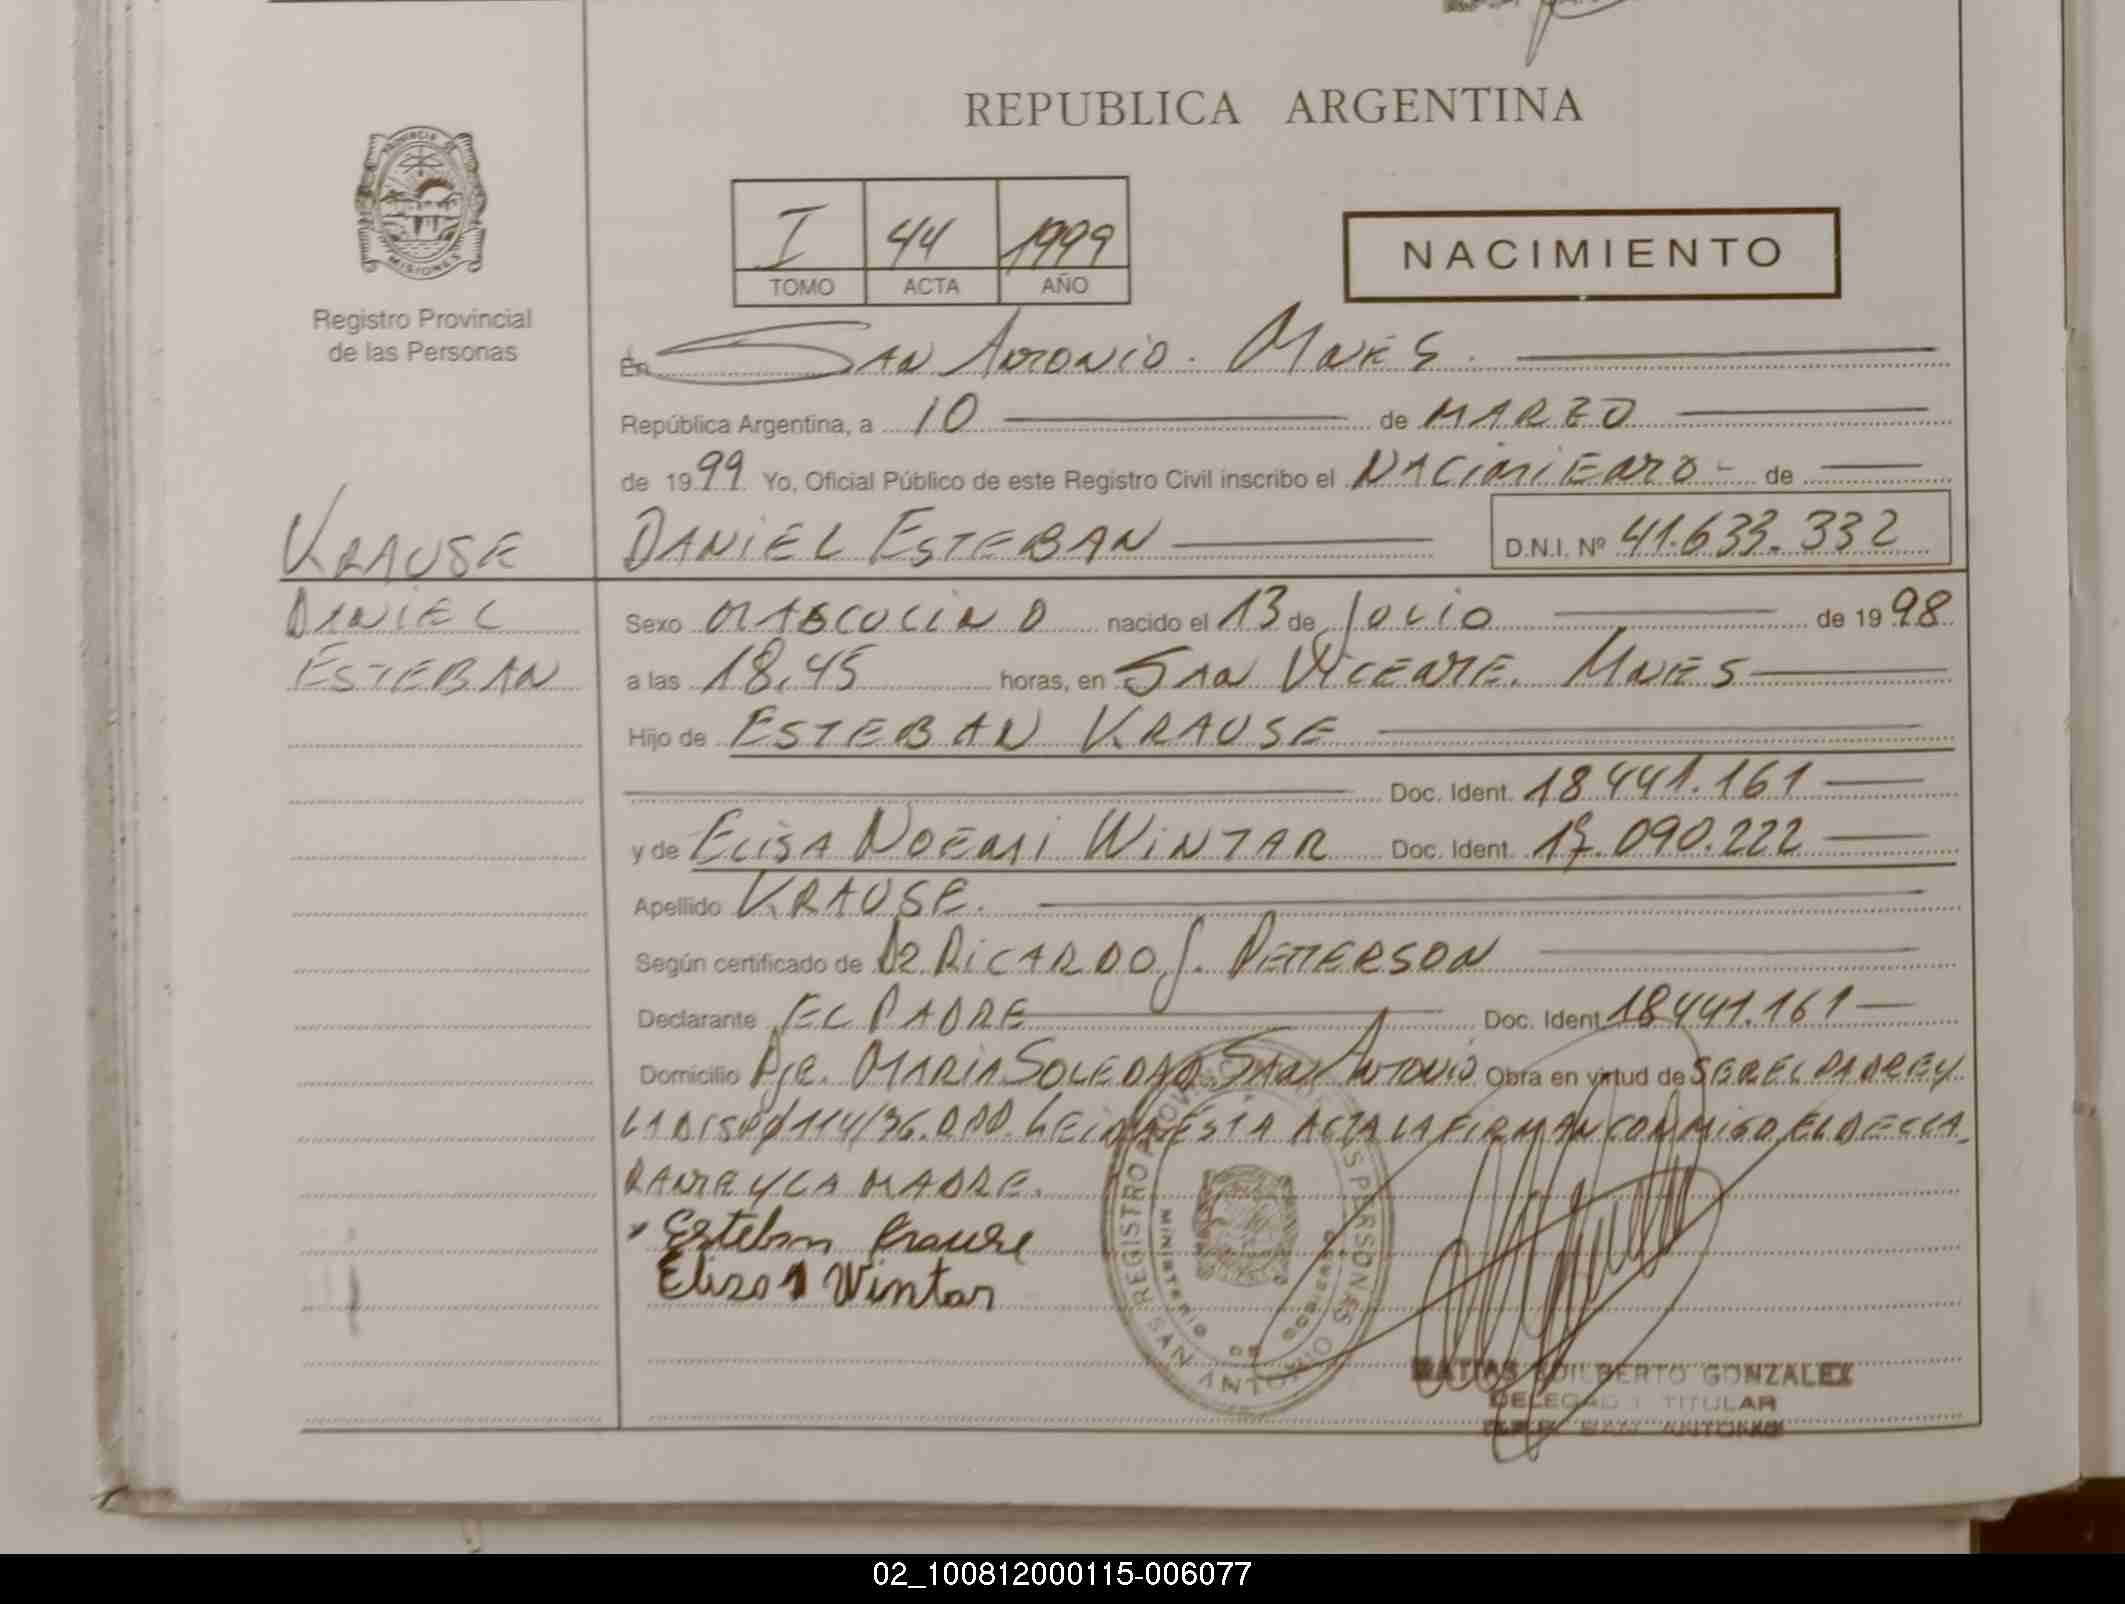 REPUBLICA ARGENTINA
PROVINCIA DE
MISIONES
Registro Provincial
de las Personas
I 44 1999
TOMO ACTA AÑO
NACIMIENTO
En SAN ANTONIO. MNES.
República Argentina, a 10 de MARZO
de 1999 Yo, Oficial Público de este Registro Civil inscribo el NACIMIENTO - de
KRAUSE
DANIEL ESTEBAN D.N.I. Nº 41.633.332
DANIEL
ESTEBAN
Sexo MASCULINO nacido el 13 de JULIO de 1998
a las 18,45 horas, en SAN VICENTE. MNES
Hijo de ESTEBAN KRAUSE
Doc. Ident. 18 441.161
y de ELISA NOEMI WINTAR Doc. Ident. 17.090.222
Apellido KRAUSE.
Según certificado de DR RICARDO J. PETTERSON
Declarante EL PADRE Doc. Ident 18441.161
Domicilio Pje. MARIA SOLEDAD SAN ANTONIO Obra en virtud de SER EL PADRE Y
LA 114/96. LEIDA ESTA ACTA LA FIRMAN CONMIGO EL DECLA
RANTE Y LA MADRE.
Esteban Krause
Elisa Wintar
REGISTRO PROVINCIAL DE LAS PERSONAS
MINISTERIO DE GOBIERNO
SAN ANTONIO
MATIAS EDILBERTO GONZALEZ
DELEGADO TITULAR
R.P.P. SAN ANTONIO
02_100812000115-006077